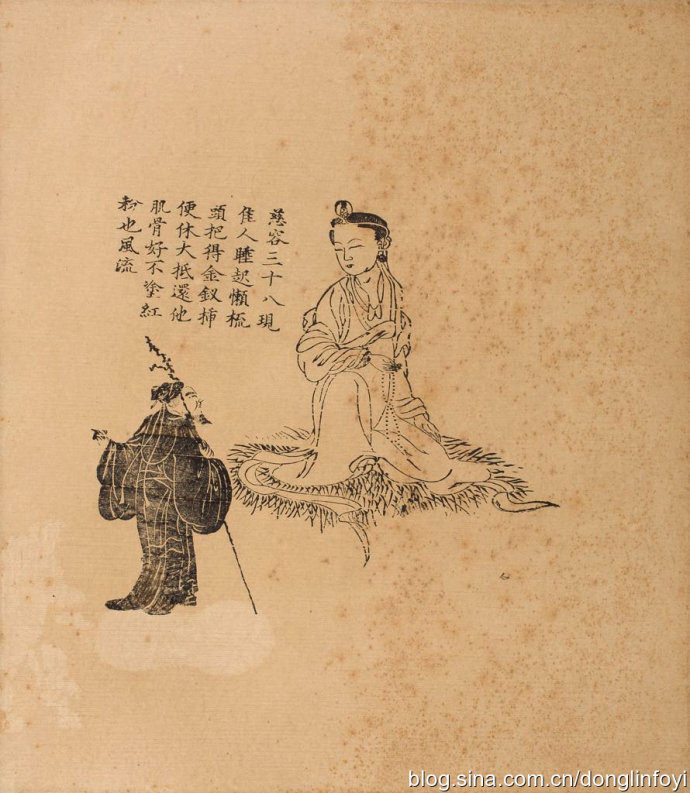 慈容三十八現
隹人睡起懶梳
頭把得金釵挿
便休大抵還他
肌骨好不塗紅
粉也風流
blog.sina.com.cn/donglinfoyi